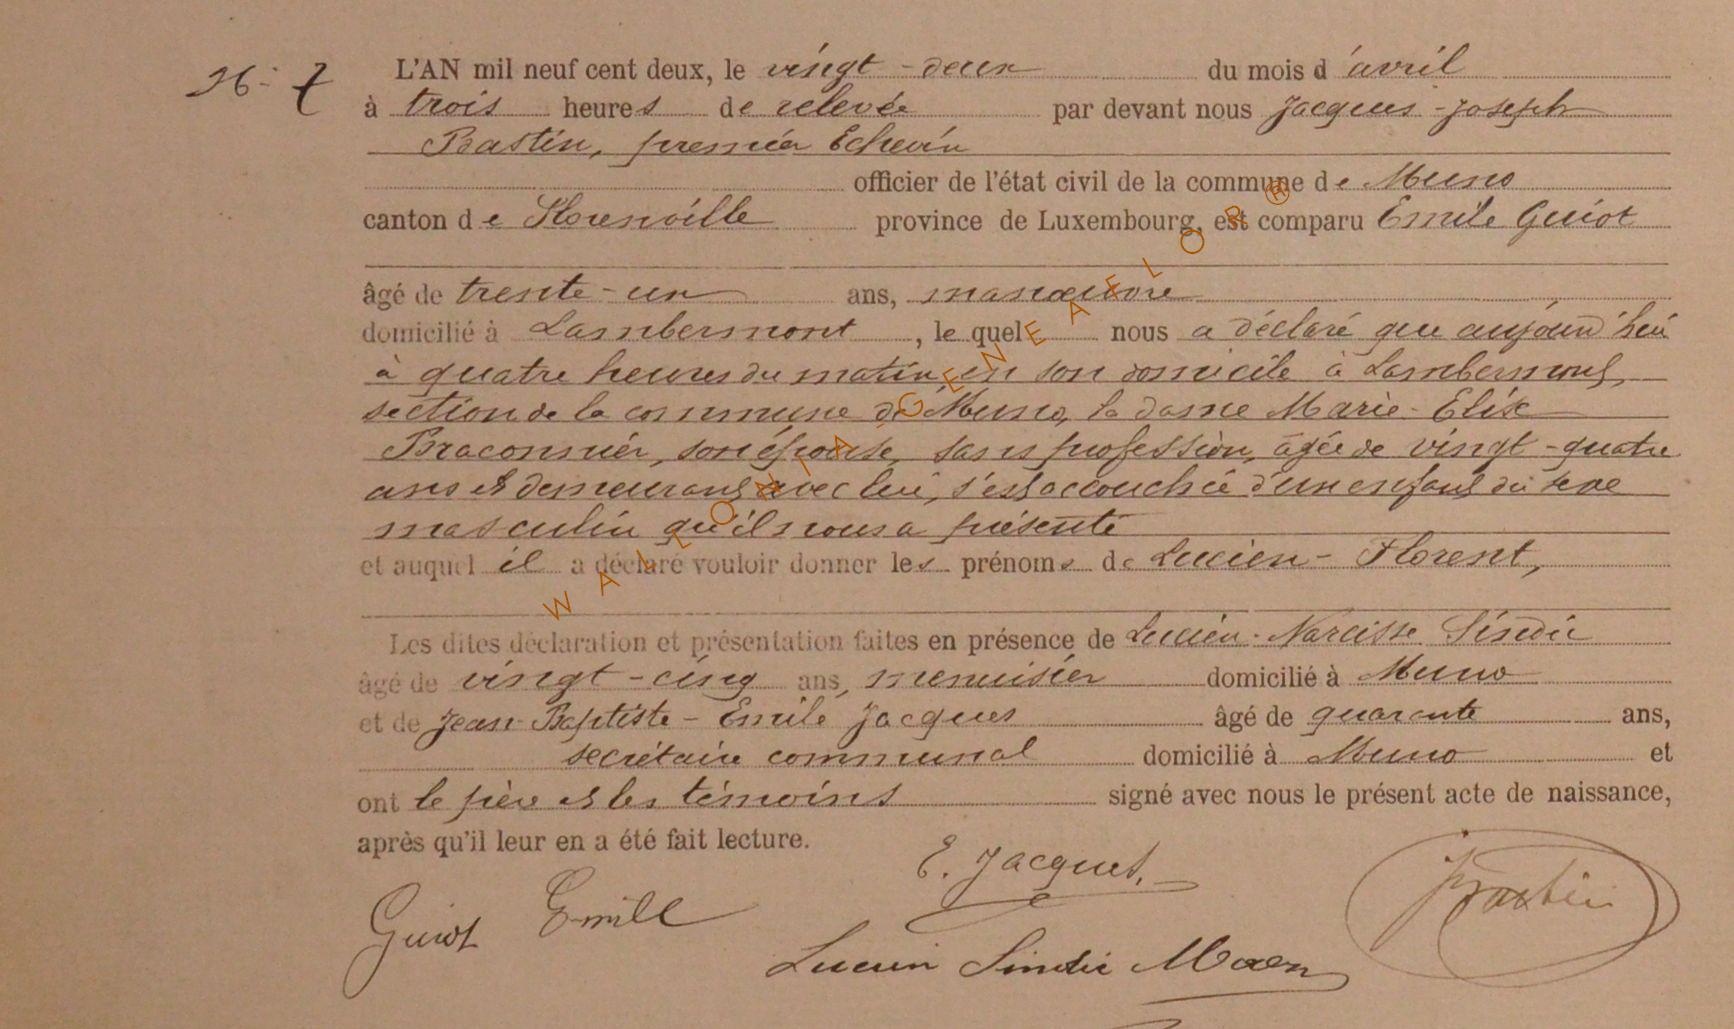 N° 7
L'AN mil neuf cent deux, le vingt-deux du mois d'avril
à trois heures de relevée par devant nous Jacques-Joseph
Bastin, premier Echevin
officier de l'état civil de la commune de Muno
canton de Florenville province de Luxembourg, est comparu Emile Guiot
âgé de trente-un ans, manœuvre
domicilié à Lambermont, le quel nous a déclaré que aujourd'hui
à quatre heures du matin, en son domicile à Lambermont,
section de la commune de Muno, la dame Marie-Elise
Braconnier, son épouse, sans profession, âgée de vingt-quatre
ans et demeurant avec lui, s'est accouchée d'un enfant du sexe
masculin qu'il nous a présenté
et auquel il a déclaré vouloir donner les prénoms de Lucien-Florent,
Les dites déclaration et présentation faites en présence de Lucien-Narcisse
âgé de vingt-cinq ans, menuisier domicilié à Muno
et de Jean-Baptiste-Emile Jacques âgé de quarante ans,
secrétaire communal domicilié à Muno et
ont le père et les témoins signé avec nous le présent acte de naissance,
après qu'il leur en a été fait lecture.
E. Jacques.
JBastin
Guiot Emile
Lucien
WALLONIA-GENEAELOR®